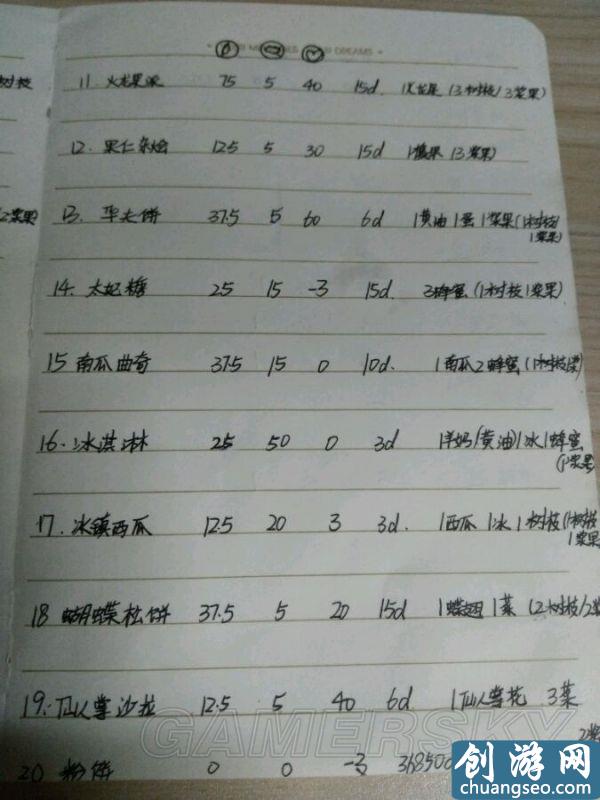 DREAMS
树枝
11. 火龙果派 75 5 40 15d 1火龙果 (3树枝/3浆果)
12. 果仁杂烩 12.5 5 30 15d (3浆果)
2浆果)
13. 华夫饼 37.5 5 60 6d 1黄油 1蛋 1浆果 (1树枝/
1浆果)
14. 太妃糖 25 15 -3 15d 3蜂蜜 (1树枝 1浆果)
15 南瓜曲奇 37.5 15 0 10d. 1南瓜 2蜂蜜 (1树枝
16. 冰淇淋 25 50 0 3d 1羊奶(黄油) 1冰 1蜂蜜
(1浆果)
17. 冰镇西瓜 12.5 20 3 3d. 1西瓜 1冰 1树枝 (1树枝
1浆果)
18 蝴蝶松饼 37.5 5 20 15d 1蝶翅 1菜 (2树枝/2浆
19. 仙人掌沙拉 12.5 5 40 6d 1仙人掌花 3菜
20 粉饼 0 0 -3
GAMERSKY
创游网
chuangseo.com